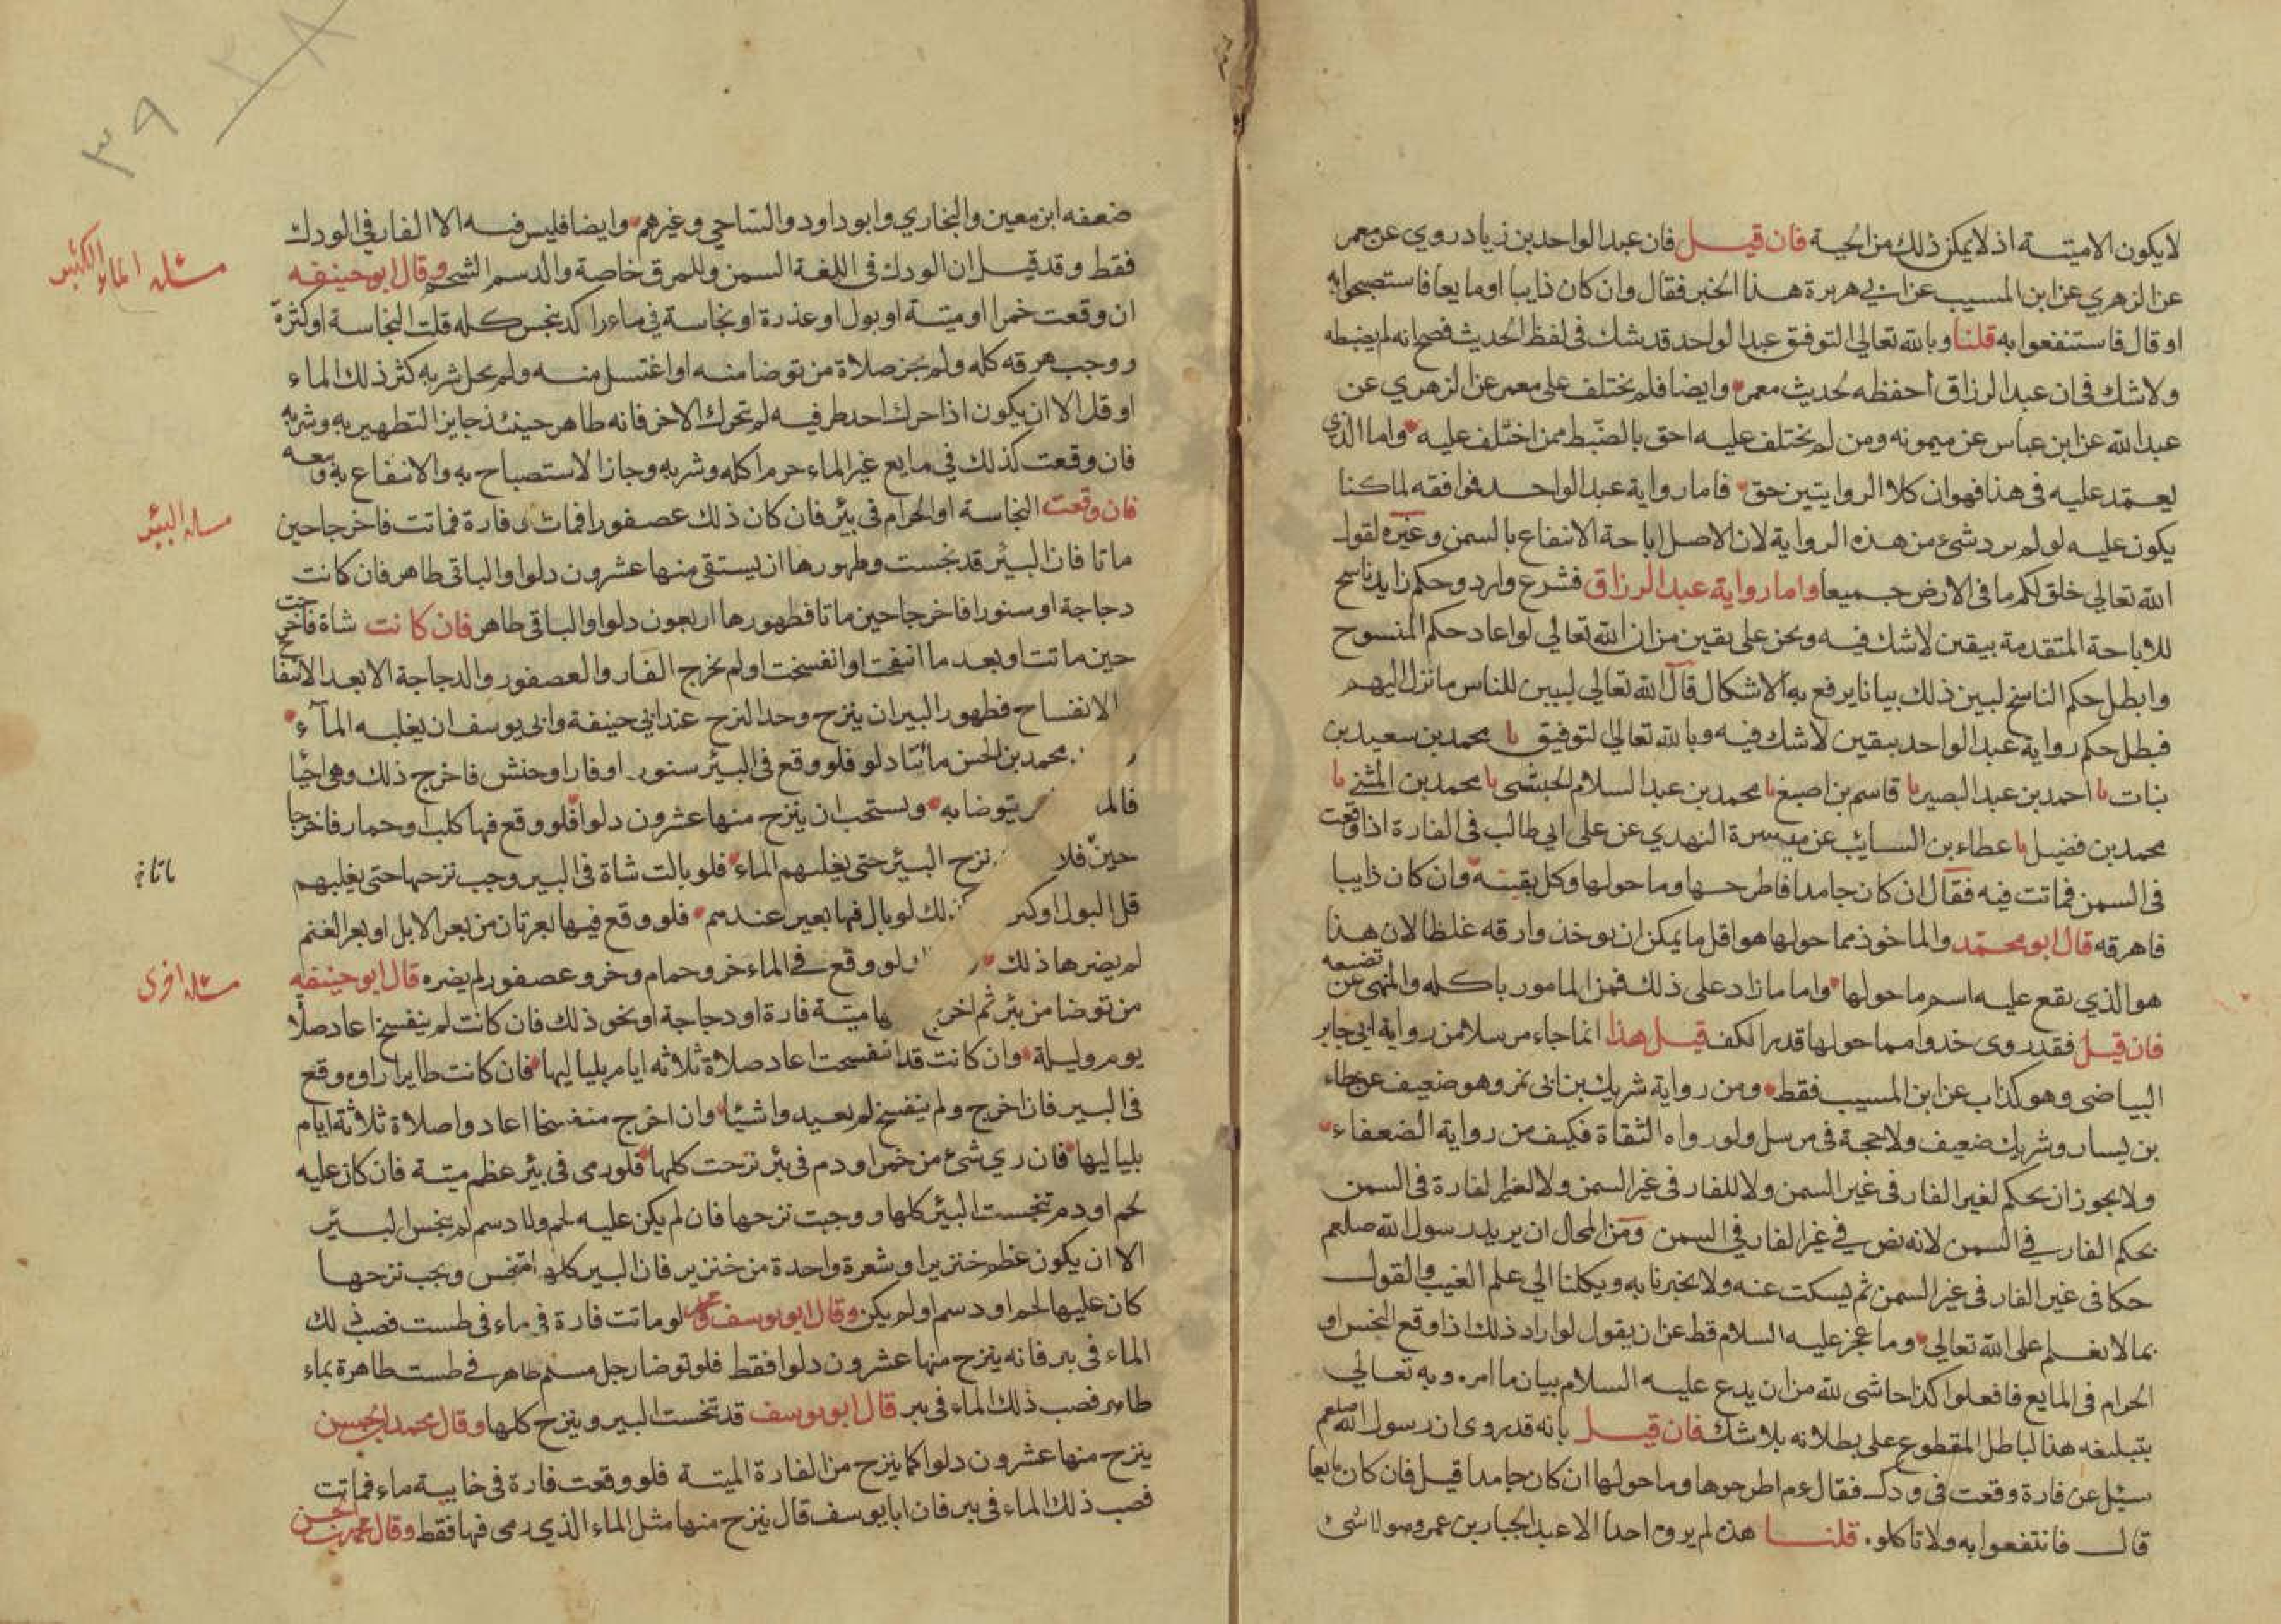 لا يكون الا ميتة اذ لا يمكن ذلك من الحية فان قيل فان عبد الواحد بن زياد روي عن معمر
عن الزهري عن ابن المسيب عن ابي هريرة هذا الخبر فقال وان كان ذايبا او مايعا فاستصبحوا به
او قال فاستنفعوا به قلنا وبالله تعالي التوفيق عبد الواحد قد شك في لفظ الحديث فصح انه لم يضبطه
ولا شك في ان عبد الرزاق احفظه لحديث معمر وايضا فلم يختلف علي معمر عن الزهري عن
عبد الله عن ابن عباس عن ميمونه ومن لم يختلف عليه احق بالضبط ممن اختلف عليه واما الذي
يعتمد عليه في هذا فهو ان كلا الروايتين حق فاما رواية عبد الواحد فموافقه لما كنا
يكون عليه لو لم يرد شيء من هذه الرواية لان الاصل اباحة الانتفاع بالسمن وغيره لقول
الله تعالي خلق لكم ما في الارض جميعا واما رواية عبد الرزاق فشرع وارد وحكم زايد ناسخ
للاباحة المتقدمة بيقين لا شك فيه ونحن على يقين من ان الله تعالي لو اعاد حكم المنسوخ
وابطل حكم الناسخ لبين ذلك بيانا يرفع به الاشكال قال الله تعالي ليبين للناس ما نزل اليهم
فبطل حكم رواية عبد الواحد بيقين لا شك فيه وبالله تعالي التوفيق نا محمد بن سعيد بن
نبات نا احمد بن عبد البصير نا قاسم بن اصبغ نا محمد بن عبد السلام الخشني نا محمد بن المثني نا
محمد بن فضيل نا عطاء بن السايب عن ميسرة النهدي عن علي ابي طالب في الفارة اذا وقعت
في السمن فماتت فيه فقال ان كان جامدا فاطرحها وما حولها وكل بقيته وان كان ذايبا
فاهرقه قال ابو محمد والماخوذ مما حولها هو اقل ما يمكن ان يوخذ وارقه غلظا لان هذا
هو الذي يقع عليه اسم ما حولها واما ما زاد على ذلك فمن المامور باكله والمنهي عن تضييعه
فان قيل فقد روى خذوا مما حولها قدر الكف قيل هذا انما جاء مرسلا من رواية ابي جابر
البياضى وهو كذاب عن ابن المسيب فقط ومن رواية شريك بن ابي نمر وهو ضعيف عن عطاء
بن يسار وشريك ضعيف ولا حجة في مرسل ولو رواه الثقاة فكيف من رواية الضعفاء
ولا يجوز ان يحكم لغير الفار في غير السمن ولا للفار في غير السمن ولا لغير الفارة في السمن
بحكم الفار في السمن لانه نص في غير الفار في السمن ومن المحال ان يريد رسول الله صلعم
حكما في غير الفار في غير السمن ثم يسكت عنه ولا يخبرنا به ويكلنا الي علم الغيب والقول
بما لا نعلم على الله تعالي وما عجز عليه السلام قط عن ان يقول لو اراد ذلك اذا وقع النجس او
الحرام في المايع فافعلوا كذا حاشى لله من ان يدع عليه السلام بيان ما امره ربه تعالي
بتبليغه هذا الباطل المقطوع على بطلانه بلا شك فان قيل بانه قد روى ان رسول الله صلعم
سئل عن فارة وقعت في ودك فقال عم اطرحوها وما حولها ان كان جامدا قيل فان كان مايعا
قال فانتفعوا به ولا تاكلوه قلنا هذا لم يروه احد الا عبد الجبار بن عمر وهو لا شيء
٣٩
٣٨
ضعفه ابن معين والبخاري وابو داود والساجي وغيرهم وايضا فليس فيه الا الفار في الودك
فقط وقد قيل ان الودك في اللغة السمن وللمرق خاصة والدسم الشحم وقال ابو حنيفه
مسئلة الماء الكثير
ان وقعت خمرا او ميتة او بول او عذرة او نجاسة في ماء راكد نجس كله قلت النجاسة او كثرة
ووجب هرقه كله ولم يجز صلاة من توضا منه او اغتسل منه ولم يحل شربه كثر ذلك الماء
او قل الا ان يكون اذا حرك احد طرفيه لم تحرك الاخر فانه طاهر حينئذ جايز التطهير به وشربه
فان وقعت كذلك في مايع غير الماء حرم اكله وشربه وجاز الاستصباح به والانتفاع به وبيعه
فان وقعت النجاسة او الحرام في بئر فان كان ذلك عصفورا فمات او فارة فماتت فاخرجا حين
مساله البئر
ماتا فان البئر قد نجست وطهورها ان يستقي منها عشرون دلوا والباقي طاهر فان كانت
دجاجة او سنورا فاخرجا حين ماتا فطهورها اربعون دلوا والباقي طاهر فان كانت شاة فاخرجت
حين ماتت او بعد ما انتفخت او انفسخت او لم يخرج الفار والعصفور والدجاجة الا بعد الانتفاخ
الانفساخ فطهور البير ان ينزح وحد النزح عند ابي حنيفة وابي يوسف ان يغلبه المآء
محمد بن الحسن مائتا دلو فلو وقع في البئر سنور او فار او حنش فاخرج ذلك وهي احيا
يتوضا به ويستحب ان ينزح منها عشرون دلوا فلو وقع فيها كلب او حمار فاخرجا
حين فلا نزح البئر حتى يغلبهم الماء فلو بالت شاة في البير وجب نزحها حتى يغلبهم
قل البول او كثر كذلك لو بال فيها بعير عندهم فلو وقع فيها بعرتان من بعر الابل او بعر الغنم
لم يضرها ذلك لو وقع في الماء خرو حمام وخرو عصفور لم يضره قال ابو حنيفه
مسئلة اخرى
من توضا من بئر ثم اخرج ميتة فارة او دجاجة او نحو ذلك فان كانت لم ينفسخ اعاد صلاة
يوم وليلة وان كانت قد انفسخت اعاد صلاة ثلاثه ايام بلياليها فان كانت طايرا راوه وقع
في البير فان اخرج ولم ينفسخ لم يعيدوا شيئا وان اخرج منفسخا اعادوا صلاة ثلاثة ايام
بلياليها فان ري شئ من خمر او دم في بئر نزحت كلها فلو رمى في بئر عظم ميتة فان كان عليه
لحم او دم تنجست البئر كلها ووجبت نزحها فان لم يكن عليه لحم ولا دسم لم ينجس البئر
الا ان يكون عظم خنزير او شعرة واحدة من خنزير فان البير كلها تنجس ويجب نزحها
كان عليها لحم او دسم او لم يكن وقال ابو يوسف لو ماتت فارة في ماء في طست فصب ذلك
الماء في بير فانه ينزح منها عشرون دلوا فقط فلو توضا رجل مسلم طاهر في طست طاهرة بماء
طاهر فصب ذلك الماء في بير قال ابو يوسف قد تنجست البير وينزح كلها وقال محمد بن الحسن
ينزح منها عشرون دلوا كما ينزح من الفارة الميتة فلو وقعت فارة في خابية ماء فماتت
فصب ذلك الماء في بير فان ابا يوسف قال ينزح منها مثل الماء الذي رمى فيها فقط وقال محمد بن الحسن